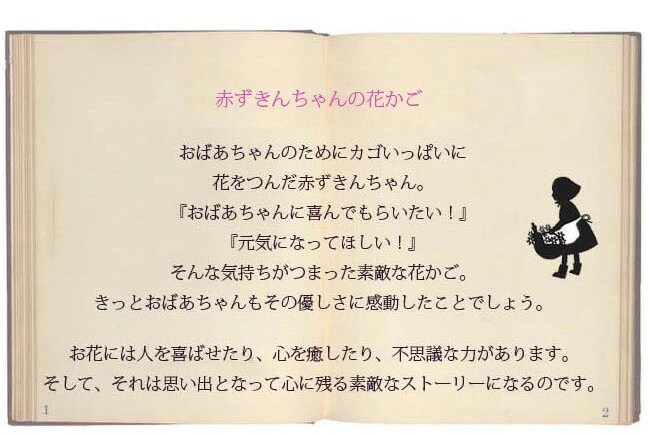 赤ずきんちゃんの花かご
おばあちゃんのためにカゴいっぱいに
花をつんだ赤ずきんちゃん。
『おばあちゃんに喜んでもらいたい！』
『元気になってほしい！』
そんな気持ちがつまった素敵な花かご。
きっとおばあちゃんもその優しさに感動したことでしょう。
お花には人を喜ばせたり、心を癒したり、不思議な力があります。
そして、それは思い出となって心に残る素敵なストーリーになるのです。
1
2